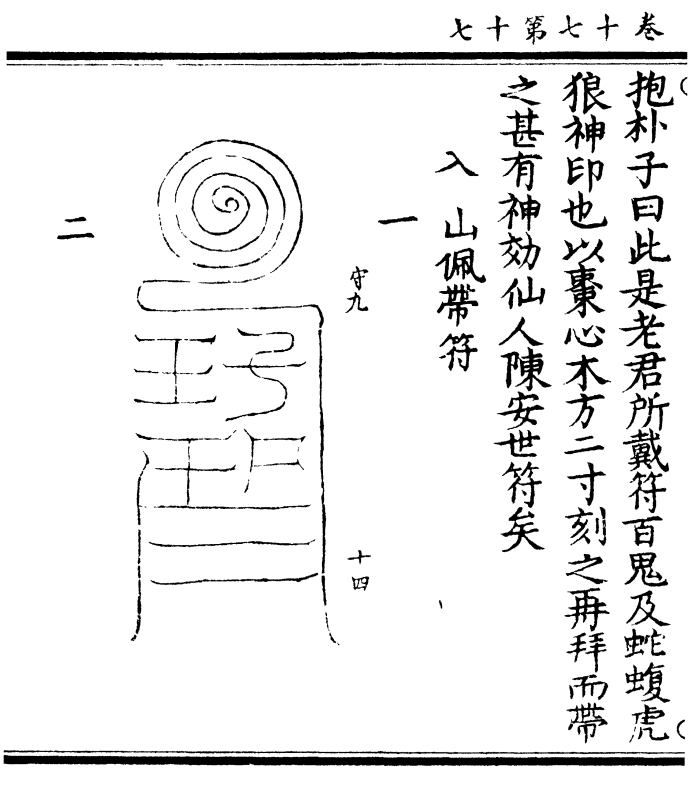 卷十七第十七
抱朴子曰此是老君所戴符百鬼及蛇蝮虎
狼神印也以棗心木方二寸刻之再拜而帶
之甚有神効仙人陳安世符矣
入山佩帶符
一
守九
十四
二